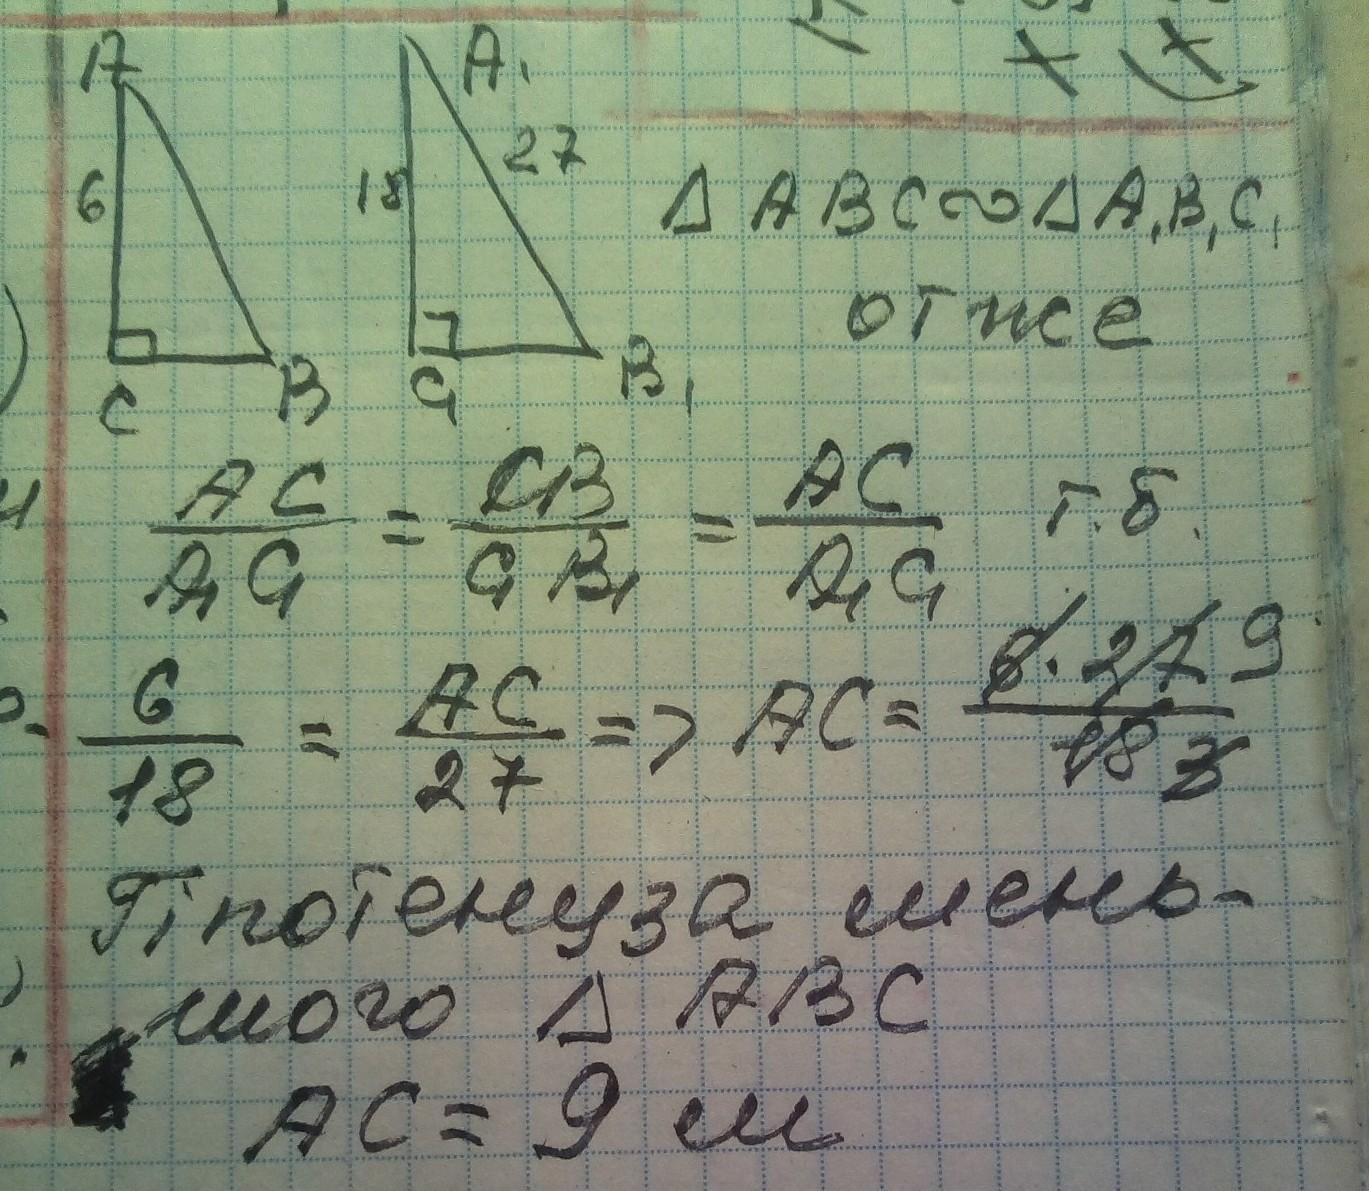 A A₁
27
6 18
Δ ABC ∾ Δ A₁B₁C₁
отже
C B C₁ B₁
AC/A₁C₁ = CB/C₁B₁ = AC/A₁C₁ т.б.
6/18 = AC/27 => AC = 6·27 9/18 3
Гіпотенуза мень-
шого Δ ABC
AC = 9 м